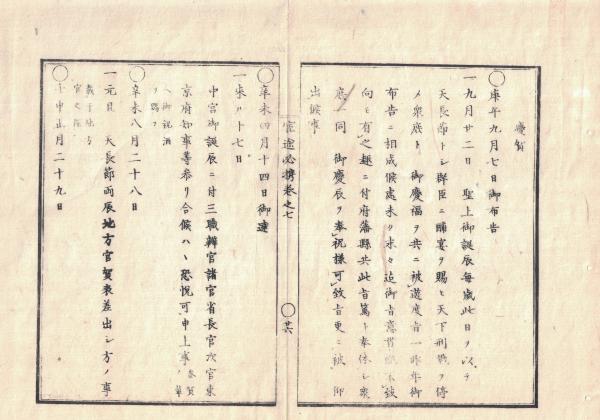 慶賀
○庚午九月七日御布告
一九月廿二日 聖上御誕辰毎歳此日ヲ以テ
天長節トシ群臣ニ酺宴ヲ賜ヒ天下刑戮ヲ停
メ衆庶ト 御慶福ヲ共ニ被遊度旨一昨年御
布告ニ相成候處未タ末々迄御旨意貫徹不致
向モ有之趣ニ付府藩縣共此旨篤ト奉体シ衆
庶一同 御慶辰ヲ奉祝様可致旨更ニ被 仰
出候事
官途必携巻之七
○廿六
○辛未四月十四日御達
一来ル十七日
中宮御誕辰ニ付三職辨官諸官省長官次官東
京府知事等参リ合候ハヽ恐悦可申上事 参賀
ヘ御祝酒
ヲ賜フ
○辛未八月二十八日
一元日 天長節両辰地方官賀表差出シ方ノ事
載于地方
官之部
○壬申正月二十九日